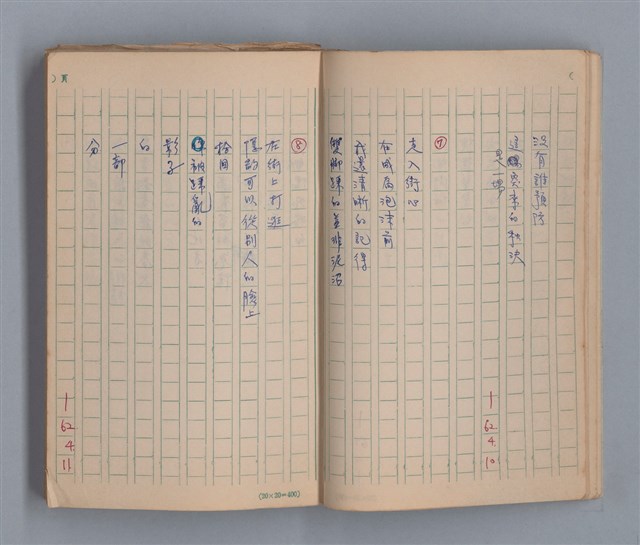 沒有誰預防
這場突來的判決
是一場
1 62. 4. 10
⑦
走入街心
在成為泡沫前
我還清晰的記得
雙腳踩的並非泥沼
⑧
在街上打逛
隱約可以從別人的臉上
撿回
被踩亂的
影子
的
一部
分
1 62. 4. 11
(20×20=400)